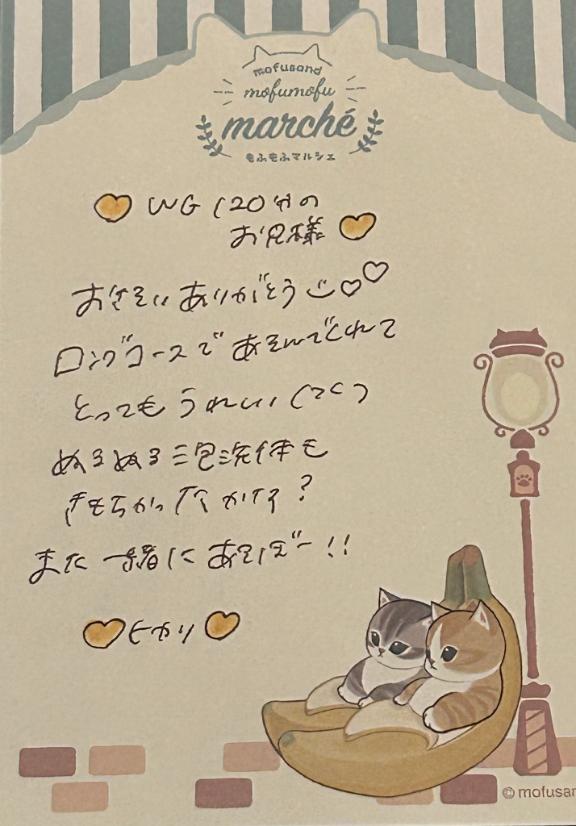 mofusand
mofumofu
marché
もふもふマルシェ
WG 120分の
お兄様
おさそい ありがとう
ロングコースで あそんでくれて
とっても うれしい
ぬるぬる 泡洗体も
きもちかった かな?
また 一緒に あそぼー!!
ヒカリ
© mofusan